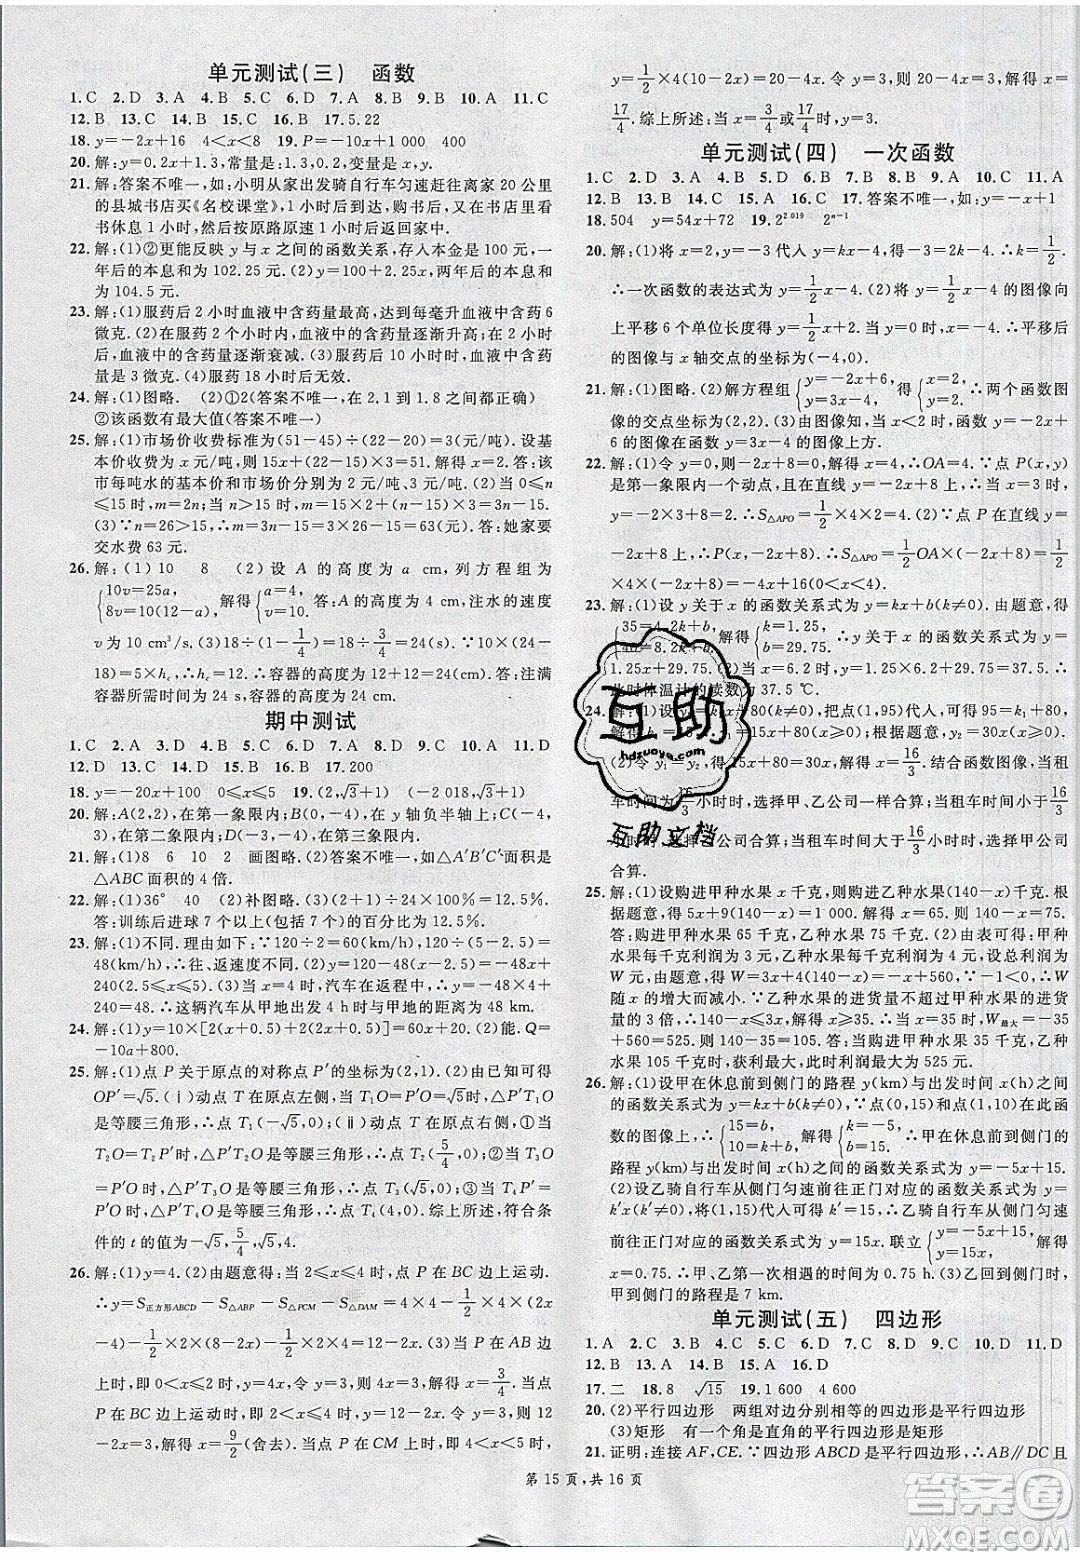 单元测试(三) 函数
1.C 2.D 3.A 4.B 5.C 6.D 7.A 8.B 9.B 10.A 11.C
12.B 13.C 14.A 15.C 16.B 17.5.22
18.y=-2x+16 4<x<8 19.P=-10x+1 000 400
20.解:y=0.2x+1.3,常量是:1.3,0.2,变量是x,y.
21.解:答案不唯一,如:小明从家出发骑自行车匀速赶往离家20公里
的县城书店买《名校课堂》,1小时后到达,购书用时1小时,在
书休息1小时,然后按原路原速返回家中.
22.解:(1)②更能反映y与x之间的函数关系,存入本金是100元,一
年后的本息和为102.25元.(2)y=100+2.25x,两年后的本息和
为104.5元.
23.解:(1)服药后2小时血液中含药量最高,达到每毫升血液中含药6
微克.(2)在服药2小时内,血液中的含药量逐渐升高;在服药2小时后,
血液中的含药量逐渐衰减.(3)服药后14小时时,血液中含药
量是3微克.(4)服药18小时后无效.
24.解:(1)图略. (2)①2(答案不唯一,在2.1到1.8之间都正确)
②该函数有最大值(答案不唯一)
25.解:(1)市场价收费标准为(51-45)÷(17-15)=3(元/吨).设基
本价收费为x元/吨,则15x+(22-15)×3=51.解得x=2.答:该
市每吨水的基本价和市场价分别为2元/吨,3元/吨.(2)当0≤n
≤15时,m=2n;当n>15时,m=15×2+(n-15)×3=3n-15.
(3)∵n=26>15,∴m=3n-15=3×26-15=63.答:她家要
交水费63元.
26.解:(1)10 8 (2)设A的高度为a cm,列方程组为
{10v=25a, 8v=10(12-a). 解得{a=4, v=10. 答:A的高度为4 cm,注水的速度
v为10 cm³/s.(3)18÷(1-1/4)=18÷3/4=24(s).∵10×(24-
18)=5×h_C,∴h_C=12.∴容器的高度为12+12=24(cm).答:注满
容器所需时间为24 s,容器的高度为24 cm.
期中测试
1.C 2.A 3.D 4.A 5.C 6.B 7.B 8.C 9.C 10.A 11.D
12.D 13.C 14.D 15.D 16.A 17.200
18.y=-20x+100 0≤x≤5 19.(2,√3+1) (-2 018,√3+1)
20.解:A(2,2),在第一象限内;B(0,-4),在y轴负半轴上;C(-4,
3),在第二象限内;D(-3,-4),在第三象限内.
21.解:(1)8 6 10 2 画图略.(2)答案不唯一,如:△A′B′C′面积是
△ABC面积的4倍.
22.解:(1)36° 40 (2)补图略.(3)(2+3)÷40×100%=12.5%.
答:训练后进球7个以上(包括7个)的百分比为12.5%.
23.解:(1)不同.理由如下:∵120÷2=60(km/h),120÷(5-2.5)=
48(km/h),∴往、返速度不同.(2)y=120-48(x-2.5)=-48x+
240(2.5≤x≤5).(3)汽车在返程中,当x=4时,y=-48×4+
240=48.∴这辆汽车从甲地出发4 h时与甲地的距离为48 km.
24.解:(1)y=10×[2(x+0.5)+2(x+0.5)]=40x+20.(2)能.Q=
-10a+800.
25.解:(1)点P关于原点的对称点P′的坐标为(2,1).(2)由已知可得
OP′=√5.(ⅰ)动点T在原点左侧,当T₁O=P′O=√5时,△P′T₁O
是等腰三角形,∴点T₁(-√5,0);(ⅱ)动点T在原点右侧,①当
T₂O=T₂P′时,△P′T₂O是等腰三角形,得点T₂(5/4,0);②当T₃O
=P′O时,△P′T₃O是等腰三角形,得点T₃(√5,0);③当T₄P′=
P′O时,△P′T₄O是等腰三角形,得点T₄(4,0).综上所述,符合条
件的t的值为-√5,5/4,√5,4.
26.解:(1)y=4.(2)由题意得:当2≤x≤4时,点P在BC边上运动.
∴y=S正方形ABCD-S△ABP-S△PCM-S△DAM=4×4-1/2×4×(2x
-4)-1/2×2×(8-2x)-1/2×4×2=12-2x.(3)当P在AB边
上时,即当0<x<2时,则y=1/2×4×2x=4x=3.解得x=3/4;
当P在BC边上时,即当2≤x≤4时,则有y=12-2x=3,即有
12-2x=3.解得x=9/2(舍去).当点P在CM上时,4<x<5,有
y=1/2×4(10-2x)=20-4x.令y=3,则20-4x=3,解得x=
17/4.综上所述:当x=3/4或17/4时,y=3.
单元测试(四) 一次函数
1.C 2.D 3.A 4.B 5.C 6.D 7.B 8.A 9.A 10.C 11.A
12.B 13.B 14.A 15.C 16.C 17.答案不唯一,如:y=-x+1
18.504 y=54x+72 19.2^2 019 2^n-1
20.解:(1)将x=2,y=-3代入y=kx-4,得-3=2k-4.∴k=1/2.
∴一次函数的表达式为y=1/2x-4.(2)将y=1/2x-4的图像向
上平移6个单位长度得y=1/2x+2.当y=0时,x=-4.∴平移后
的图像与x轴交点的坐标为(-4,0).
21.解:(1)图略.(2)解方程组{y=-2x+6, y=3x-4, 得{x=2, y=2, ∴两个函数图
像的交点坐标为(2,2).(3)由图像知,当x<2时,函数y=-2x+
6的图像在函数y=3x-4的图像上方.
22.解:(1)令y=0,则-2x+8=0.解得x=4,∴OA=4.∵点P(x,y)
是第一象限内一个动点,且在直线y=-2x+8上,∴当x=3时,y=
-2×3+8=2.∴S△APO=1/2×4×2=4.(2)∵点P在直线y=
-2x+8上,∴P(x,-2x+8).∴S△APO=1/2OA×(-2x+8)=1/2
×4×(-2x+8)=-4x+16(0<x<4).
23.解:(1)设y关于x的函数关系式为y=kx+b(k≠0).由题意,得
{35=4.2k+b, 40=8.2k+b. 解得{k=1.25, b=29.75. ∴y关于x的函数关系式为y=
1.25x+29.75.(2)当x=6.2时,y=1.25×6.2+29.75=37.5.
当时体温计的读数为37.5 ℃.
24.解:(1)设y₁=k₁x+80,把点(1,95)代入,可得95=k₁+80,
(2)令y₁=y₂,得15x+80=30x,解得x=16/3.结合函数图像可知:当租
车时间为16/3小时时,选择甲、乙公司一样合算;当租车时间小于16/3
小时时,选择乙公司合算;当租车时间大于16/3小时时,选择甲公司
合算.
25.解:(1)设购进甲种水果x千克,则购进乙种水果(140-x)千克.
根据题意,得5x+9(140-x)=1 000.解得x=65.∴140-x=75.
答:购进甲种水果65千克,乙种水果75千克.(2)由表可得:甲种
水果每千克利润为3元,乙种水果每千克利润为4元,设总利润为
W元.由题意,得W=3x+4(140-x)=-x+560,∵-1<0,∴W
随x的增大而减小.∵乙种水果的进货量不超过甲种水果的进货
量的3倍,∴140-x≤3x.解得x≥35.∴当x=35时,W最大=-35
+560=525.∴140-35=105(千克).答:当购进甲种水果35千克,乙种
水果105千克时,获利最大,此时利润最大为525元.
26.解:(1)设甲在休息前到侧门的路程y(km)与出发时间x(h)之间
的函数关系式为y=kx+b(k≠0).由点(0,15)和点(1,10)在此函
数的图像上,得{15=b, 10=k+b. 解得{k=-5, b=15. ∴甲在休息前到侧门的
路程y(km)与出发时间x(h)之间的函数关系式为y=-5x+15.
(2)设乙骑自行车从侧门匀速前往正门对应的函数关系式为y=
k′x(k′≠0),将(1,15)代入,得k′=15.∴乙骑自行车从侧门匀速
前往正门对应的函数关系式为y=15x.联立{y=-5x+15, y=15x,
得x=0.75.∴第一次相遇的时间为0.75 h.(3)乙回到侧门时,
甲到侧门的路程是7 km.
单元测试(五) 四边形
1.A 2.C 3.B 4.C 5.C 6.D 7.C 8.D 9.C 10.D 11.D
12.B 13.D 14.B 15.A 16.D
17.二 18.8 √15 19.1 600 4 800
20.(2)平行四边形 两组对边分别相等的四边形是平行四边形
(3)矩形 有一个角是直角的平行四边形是矩形
21.证明:连接AF,CE.∵四边形ABCD是平行四边形,∴AB∥DC且
第15页,共16页
互助
hdzuoye.com
互助文档
答案圈
MXQE.COM